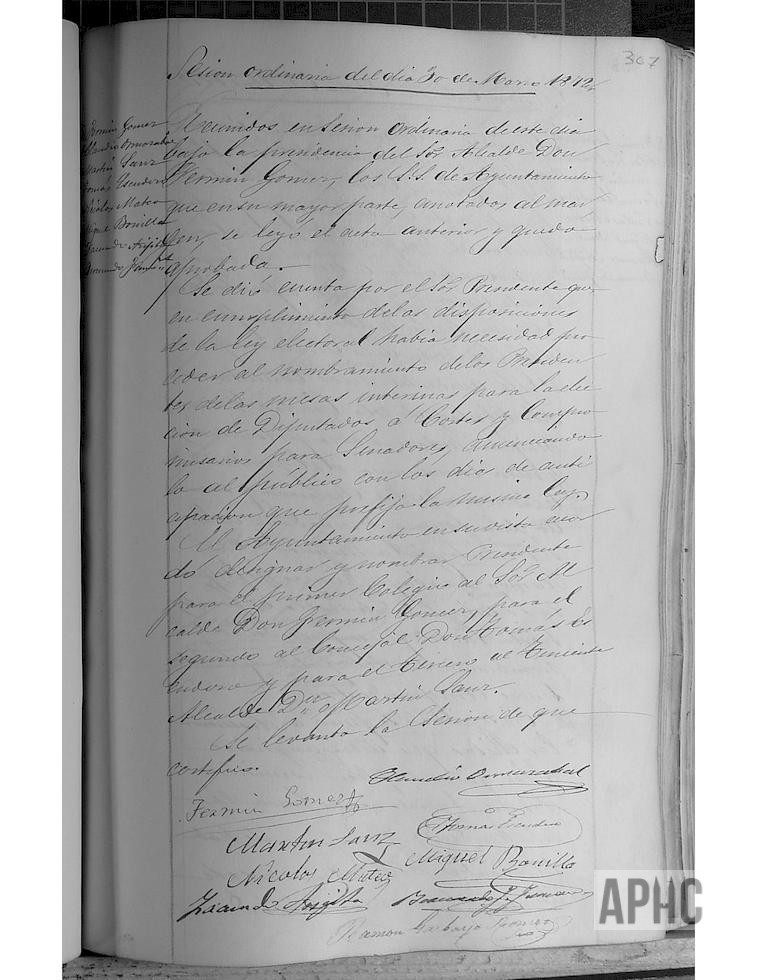 307
Sesion ordinaria del dia 30 de Marzo 1872
Fermin Gomez
Claudio Ormazabal
Martin Sanz
Tomás Escudero
Nicolas Mateo
Miguel Bonilla
Facundo Argita
Reunidos en Sesion ordinaria de este dia
bajo la presidencia del Sor. Alcalde Don
Fermin Gomez, los S.S. de Ayuntamiento
que en su mayor parte, anotados al mar
gen, se leyó el acta anterior y quedó
aprobada.
Se dió cuenta por el Sor. Presidente que
en cumplimiento de las disposiciones
de la ley electoral habia necesidad pro
ceder al nombramiento de los Presiden
tes de las mesas interinas para la elec
cion de Diputados á Cortes y Compro
misarios para Senadores, anunciando
lo al público con los dias de anti
cipacion que prefija la misma ley.
El Ayuntamiento en su vista acor
dó designar y nombrar Presidente
para el primer Colegio al Sor. Al
calde Don Fermin Gomez, para el
segundo al Concejal Don Tomas Es
cudero y para el tercero al Teniente
Alcalde Dn. Martin Sanz.
Se levantó la Sesion de que
certifico.
Claudio Ormazabal
Fermin Gomez
Tomas Escudero
Martin Sanz
Miguel Bonilla
Nicolas Mateo
Facundo Argita
Ramon Garbayo Gomez
APHC